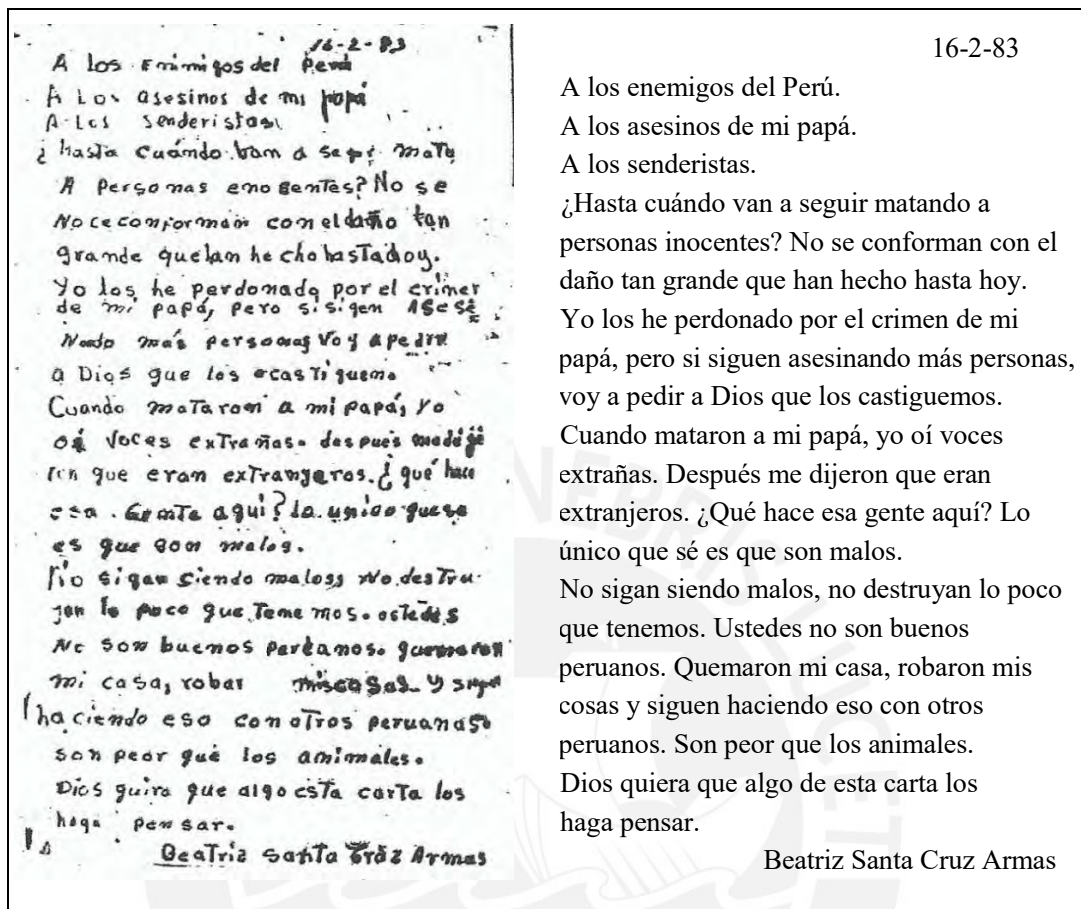 16-2-83
A los Enimigos del Perú
A Los asesinos de mi papá
A Los senderistas
¿hasta cuándo ban a segir mata
A personas enosentes? No se
No ce conforman con el daño tan
grande que lan hecho hasta doy.
Yo los he perdonado por el crimen
de mi papá, pero si sigen Asese
Nando más personas voy a pedir
a Dios que los castiguemo
Cuando mataron a mi papá, yo
oí voces extrañas. despues me dije
ron que eran extranjeros. ¿qué hace
esa Gente aqui? Lo unico que se
es que son malos.
No sigan siendo malos, No destru
jan lo poco que Tenemos. ostedes
No son buenos peruanos. quemaron
mi casa, robar mis cosas y sigen
haciendo eso con otros peruanos
son peor que los animales.
Dios quira que algo esta carta los
haga pensar.
Beatriz Santa Cruz Armas
16-2-83
A los enemigos del Perú.
A los asesinos de mi papá.
A los senderistas.
¿Hasta cuándo van a seguir matando a
personas inocentes? No se conforman con el
daño tan grande que han hecho hasta hoy.
Yo los he perdonado por el crimen de mi
papá, pero si siguen asesinando más personas,
voy a pedir a Dios que los castiguemos.
Cuando mataron a mi papá, yo oí voces
extrañas. Después me dijeron que eran
extranjeros. ¿Qué hace esa gente aquí? Lo
único que sé es que son malos.
No sigan siendo malos, no destruyan lo poco
que tenemos. Ustedes no son buenos
peruanos. Quemaron mi casa, robaron mis
cosas y siguen haciendo eso con otros
peruanos. Son peor que los animales.
Dios quiera que algo de esta carta los
haga pensar.
Beatriz Santa Cruz Armas